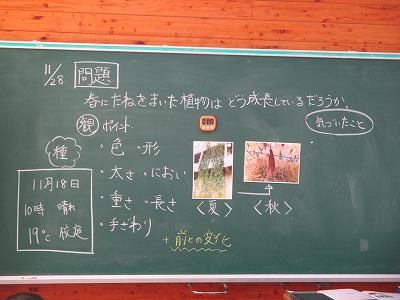 11/28 問題
春にたねをまいた植物はどう成長しているだろうか。
気づいたこと
観 ポイント
種
・色 ・形
・太さ ・におい
・重さ ・長さ
・手ざわり
+前との変化
11月18日
10時 晴れ
19℃ 校庭
<夏>
<秋>